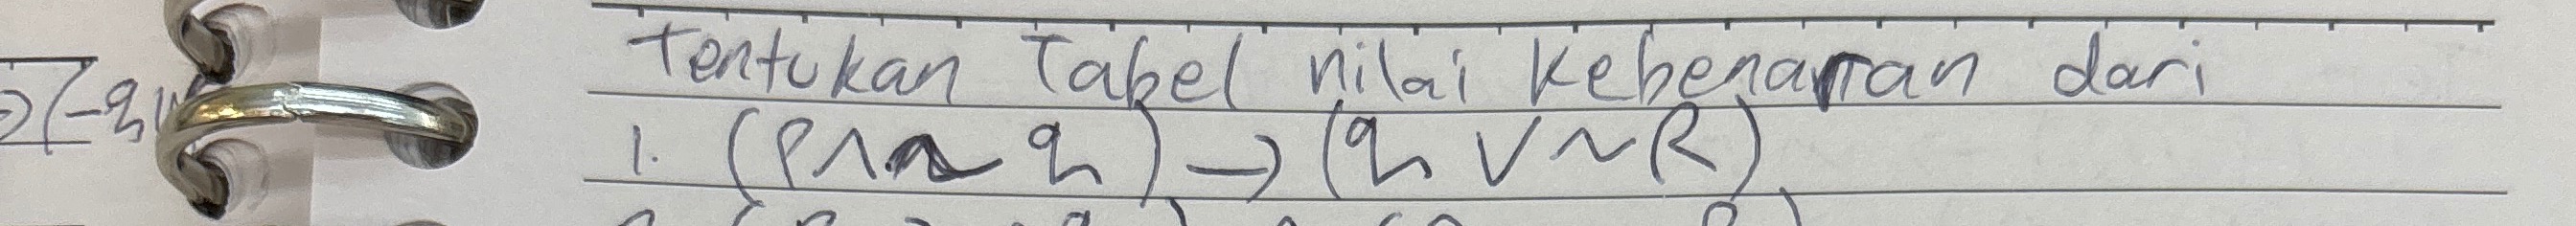 →(-q
Tentukan Tabel nilai kebenaran dari
1. (P ∧ ~ q) → (q ∨ ~ R)